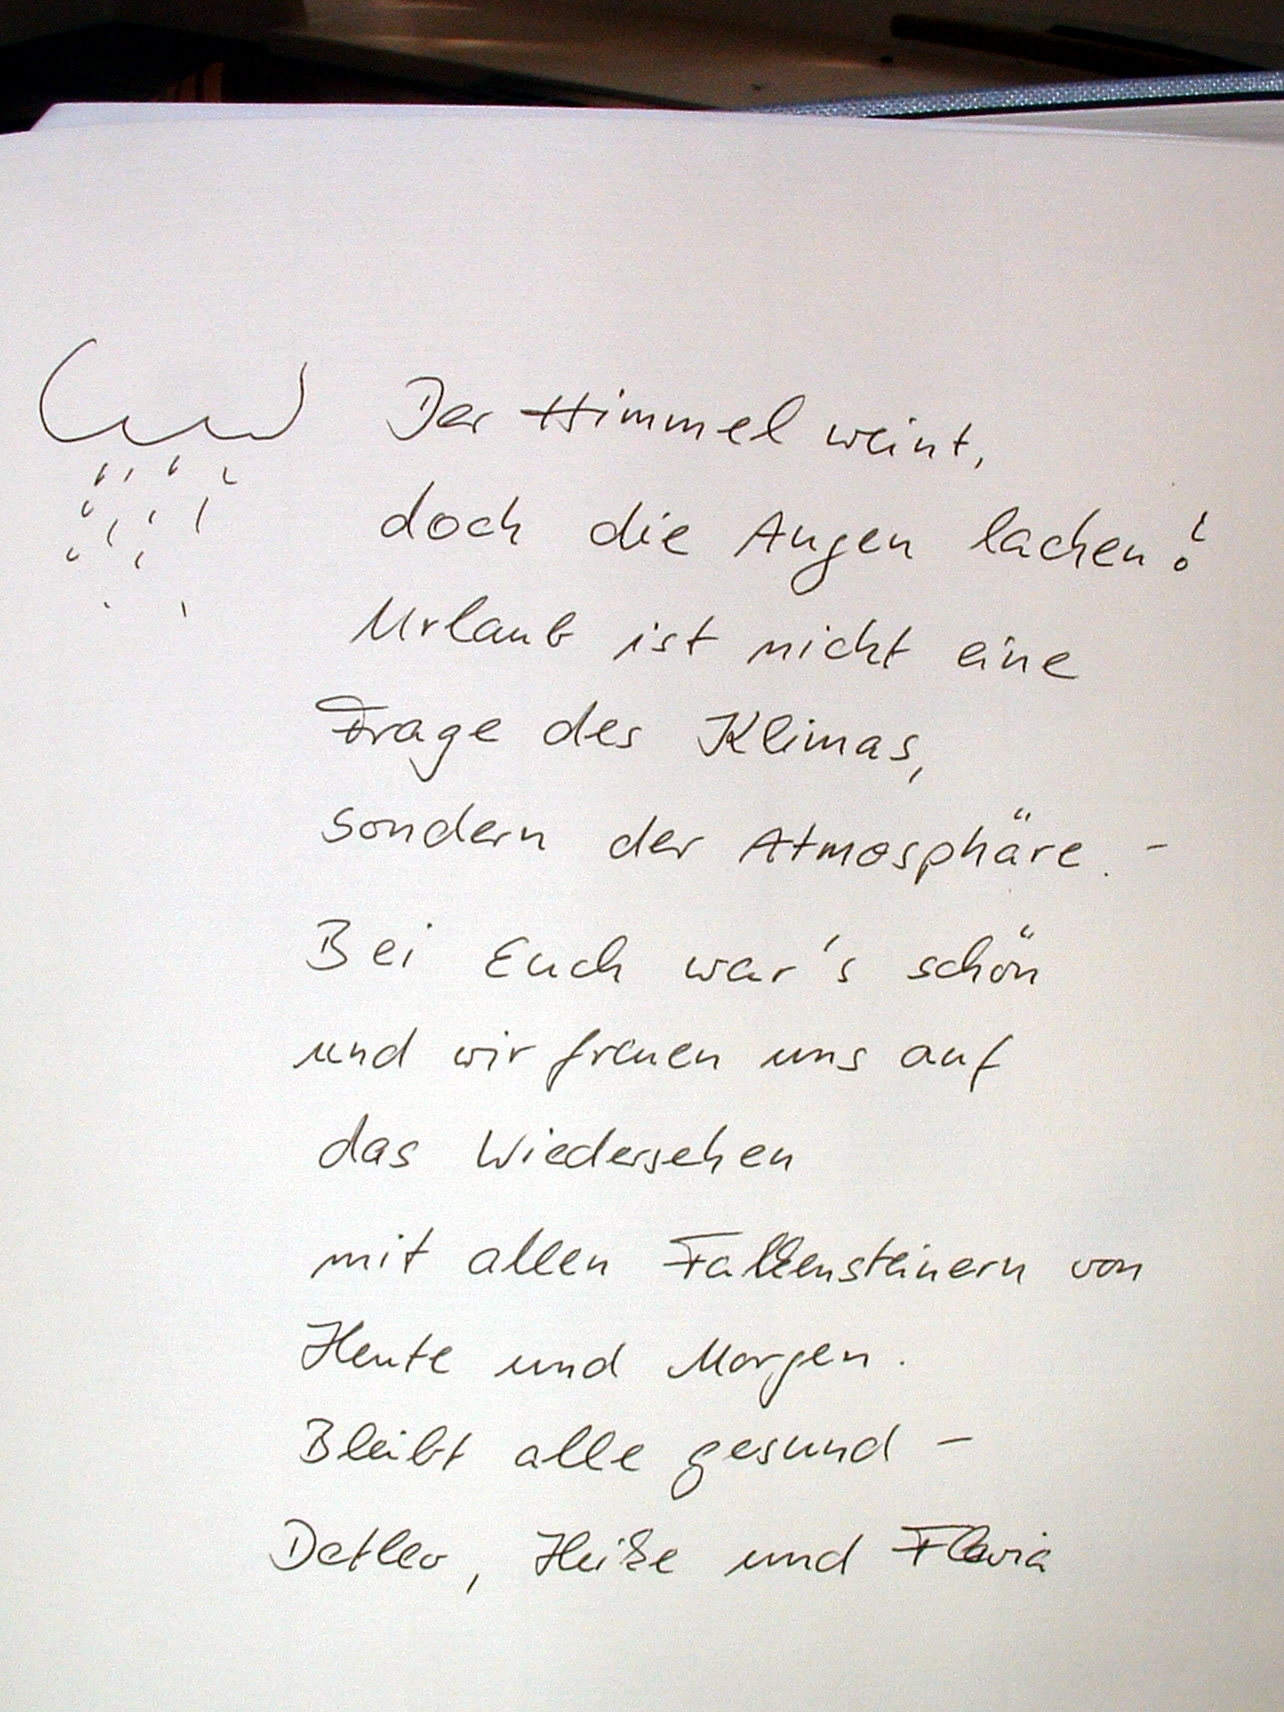 Der Himmel weint,
doch die Augen lachen!
Urlaub ist nicht eine
Frage des Klimas,
sondern der Atmosphäre. -
Bei Euch war's schön
und wir freuen uns auf
das Wiedersehen
mit allen Falkensteinern von
Heute und Morgen.
Bleibt alle gesund -
Detlev, Heike und Flavia